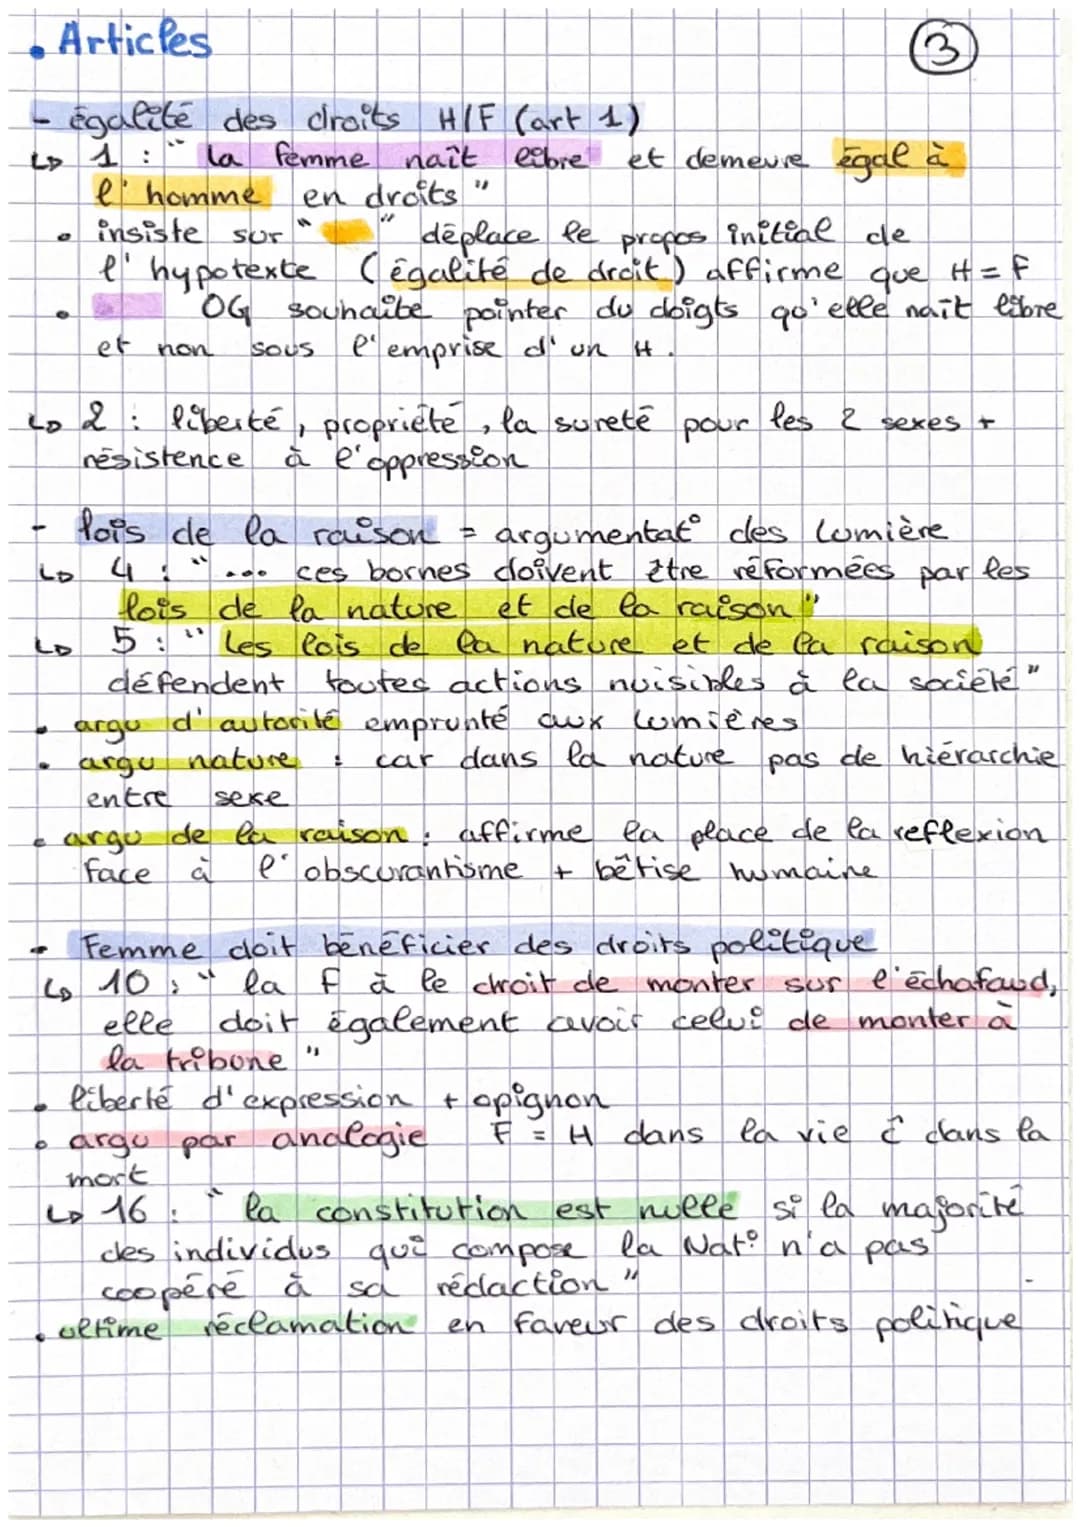 • Articles
3
- égalité des droits H/F (art 1)
↳ 1 : " la femme naît libre et demeure égal à
l'homme en droits "
• insiste sur " " déplace le propos initial de
l'hypotexte (égalité de droit) affirme que H = F
• OG souhaite pointer du doigts qu'elle naît libre
et non sous l'emprise d'un H.
↳ 2 : liberté, propriété, la sureté pour les 2 sexes +
résistence à l'oppression
- lois de la raison = argumentat° des lumière
↳ 4 : " ... ces bornes doivent être réformées par les
lois de la nature et de la raison "
↳ 5 : " les lois de la nature et de la raison
défendent toutes actions nuisibles à la société "
• argu d'autorité emprunté aux lumières
• argu nature : car dans la nature pas de hiérarchie
entre sexe
• argu de la raison : affirme la place de la reflexion
face à l'obscurantisme + bêtise humaine
- Femme doit bénéficier des droits politique
↳ 10 : " la F à le droit de monter sur l'échafaud,
elle doit également avoir celui de monter à
la tribune "
• liberté d'expression + opignon
• argu par analogie F = H dans la vie c̑ dans la
mort
↳ 16 : " la constitution est nulle si la majorité
des individus qui compose la Nat° n'a pas
coopéré à sa rédaction "
• ultime réclamation en faveur des droits politique